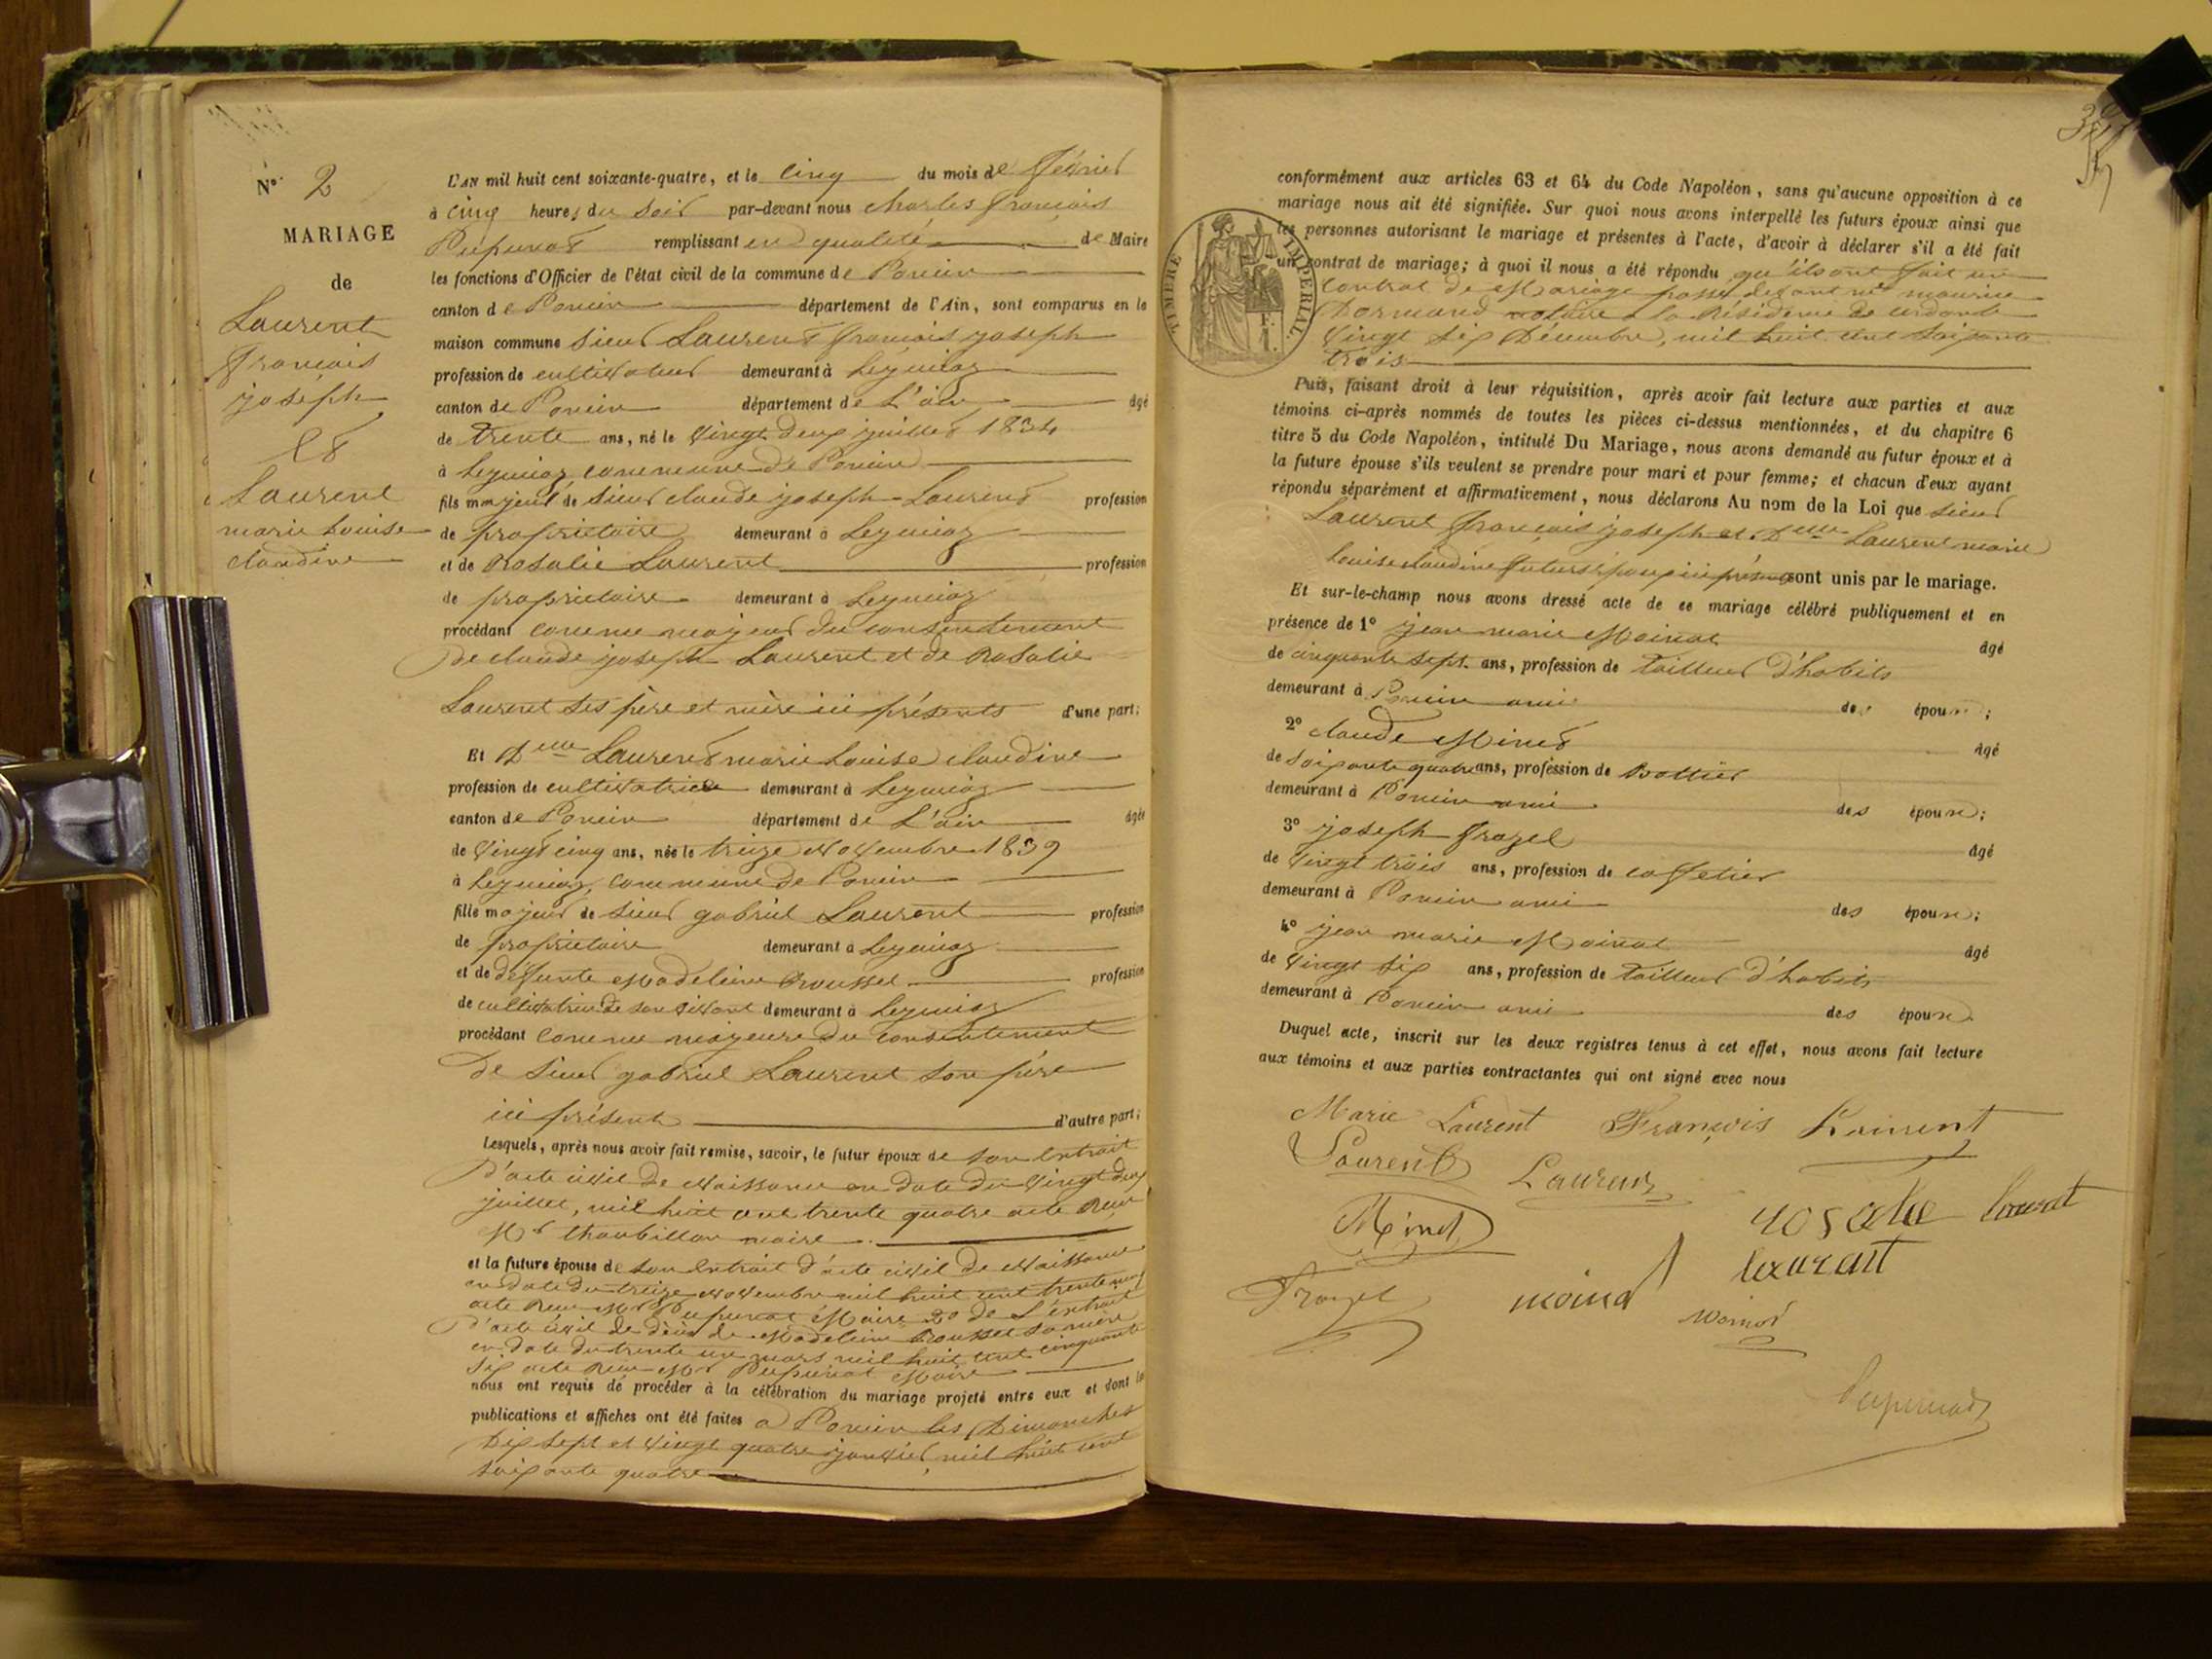 N° 2
MARIAGE
de
Laurent
françois
joseph
et
Laurent
marie Louise
claudine
L'AN mil huit cent soixante-quatre, et le cinq du mois de février
à cinq heures du soir par-devant nous charles françois
remplissant en qualité de Maire
les fonctions d'Officier de l'état civil de la commune de Poncin
canton de Poncin département de l'Ain, sont comparus en la
maison commune sieur Laurent françois joseph
profession de cultivateur demeurant à Leymiaz
canton de Poncin département de L'ain âgé
de trente ans, né le vingt deux juillet 1834
à Leymiaz commune de Poncin
fils majeur de sieur claude joseph Laurent profession
de propriétaire demeurant à Leymiaz
et de rosalie Laurent profession
de propriétaire demeurant à Leymiaz
procédant comme majeur du consentement
de claude joseph Laurent et de rosalie
Laurent ses père et mère ici présents d'une part;
Et Delle Laurent marie Louise claudine
profession de cultivatrice demeurant à Leymiaz
canton de Poncin département de L'ain âgée
de vingt cinq ans, née le treize novembre 1839
à Leymiaz, commune de Poncin
fille majeur de sieur gabriel Laurent profession
de propriétaire demeurant à Leymiaz
et de défunte Madeleine Rousset profession
de cultivatrice de son vivant demeurant à Leymiaz
procédant comme majeure du consentement
de sieur gabriel Laurent son père
ici présent d'autre part;
Lesquels, après nous avoir fait remise, savoir, le futur époux de son extrait
d'acte civil de naissance en date du vingt deux
juillet, mil huit cent trente quatre acte reçu
Mr maire
et la future épouse de son extrait d'acte civil de naissance
en date du treize novembre mil huit cent trente neuf
acte reçu Mr Maire 2° de L'extrait
d'acte civil de décès de Madeleine Rousset sa mère
en date du trente un mars mil huit cent cinquante
six acte reçu Mr Maire
nous ont requis de procéder à la célébration du mariage projeté entre eux et dont les
publications et affiches ont été faites à Poncin les Dimanches
dix sept et vingt quatre janvier mil huit cent
soixante quatre
conformément aux articles 63 et 64 du Code Napoléon, sans qu'aucune opposition à ce
mariage nous ait été signifiée. Sur quoi nous avons interpellé les futurs époux ainsi que
les personnes autorisant le mariage et présentes à l'acte, d'avoir à déclarer s'il a été fait
un contrat de mariage; à quoi il nous a été répondu qu'ils ont fait un
contrat de Mariage passé devant me maurice
Dormand notaire à la résidence de cerdon le
vingt six Décembre, mil huit cent soixante
trois
TIMBRE IMPÉRIAL
Puis, faisant droit à leur réquisition, après avoir fait lecture aux parties et aux
témoins ci-après nommés de toutes les pièces ci-dessus mentionnées, et du chapitre 6
titre 5 du Code Napoléon, intitulé Du Mariage, nous avons demandé au futur époux et à
la future épouse s'ils veulent se prendre pour mari et pour femme; et chacun d'eux ayant
répondu séparément et affirmativement, nous déclarons Au nom de la Loi que sieur
Laurent françois joseph et Delle Laurent marie
Louise claudine futurs époux ici présents sont unis par le mariage.
Et sur-le-champ nous avons dressé acte de ce mariage célébré publiquement et en
présence de 1° jean marie Moinat âgé
de cinquante sept ans, profession de tailleur d'habits
demeurant à Poncin ami des époux;
2° claude Minet âgé
de soixante quatre ans, profession de Bottier
demeurant à Poncin ami des époux;
3° joseph frazel âgé
de vingt trois ans, profession de caffetier
demeurant à Poncin ami des époux;
4° jean marie Moinat âgé
de vingt six ans, profession de tailleur d'habits
demeurant à Poncin ami des époux
Duquel acte, inscrit sur les deux registres tenus à cet effet, nous avons fait lecture
aux témoins et aux parties contractantes qui ont signé avec nous
Marie Laurent François Laurent
Laurent Laurent
Minet rosalie
laurant
Frazel